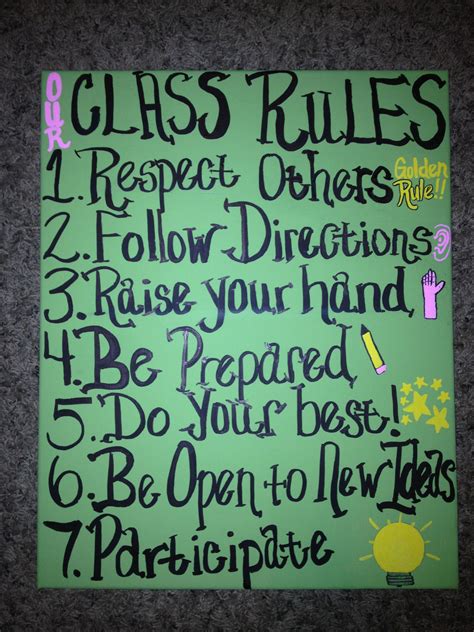 OUR CLASS RULES
1. Respect Others Golden Rule!!
2. Follow Directions
3. Raise your hand
4. Be Prepared
5. Do your best!
6. Be Open to New Ideas
7. Participate